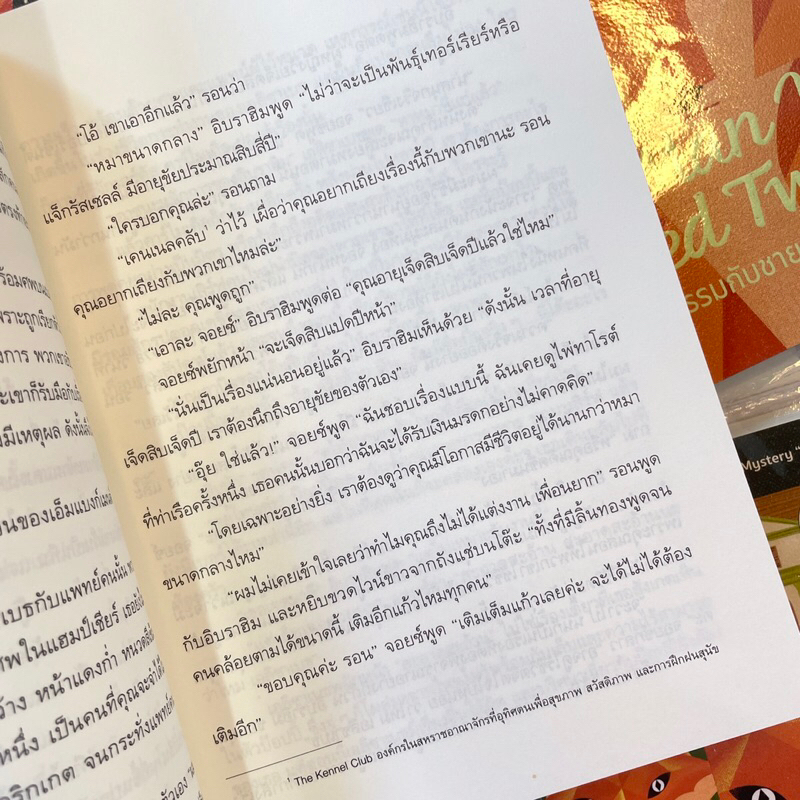 “โอ้ เขาเอาอีกแล้ว” รอนว่า
“หมาขนาดกลาง” อิบราฮิมพูด “ไม่ว่าจะเป็นพันธุ์เทอร์เรียร์หรือ
แจ็กรัสเซลล์ มีอายุขัยประมาณสิบสี่ปี”
“ใครบอกคุณล่ะ” รอนถาม
“เคนเนลคลับ¹ ว่าไว้ เผื่อว่าคุณอยากเถียงเรื่องนี้กับพวกเขานะ รอน
คุณอยากเถียงกับพวกเขาไหมล่ะ”
“ไม่ละ คุณพูดถูก”
“เอาละ จอยซ์” อิบราฮิมพูดต่อ “คุณอายุเจ็ดสิบเจ็ดปีแล้วใช่ไหม”
จอยซ์พยักหน้า “จะเจ็ดสิบแปดปีหน้า”
“นั่นเป็นเรื่องแน่นอนอยู่แล้ว” อิบราฮิมเห็นด้วย “ดังนั้น เวลาที่อายุ
เจ็ดสิบเจ็ดปี เราต้องนึกถึงอายุขัยของตัวเอง”
“อุ๊ย ใช่แล้ว!” จอยซ์พูด “ฉันชอบเรื่องแบบนี้ ฉันเคยดูไพ่ทาโรต์
ที่ท่าเรือครั้งหนึ่ง เธอคนนั้นบอกว่าฉันจะได้รับเงินมรดกอย่างไม่คาดคิด”
“โดยเฉพาะอย่างยิ่ง เราต้องดูว่าคุณมีโอกาสมีชีวิตอยู่ได้นานกว่าหมา
ขนาดกลางไหม”
“ผมไม่เคยเข้าใจเลยว่าทำไมคุณถึงไม่ได้แต่งงาน เพื่อนยาก” รอนพูด
กับอิบราฮิม และหยิบขวดไวน์ขาวจากถังแช่บนโต๊ะ “ทั้งที่มีลิ้นทองพูดจน
คนคล้อยตามได้ขนาดนี้ เติมอีกแก้วไหมทุกคน”
“ขอบคุณค่ะ รอน” จอยซ์พูด “เติมเต็มแก้วเลยค่ะ จะได้ไม่ได้ต้อง
เติมอีก”
¹ The Kennel Club องค์กรในสหราชอาณาจักรที่อุทิศตนเพื่อสุขภาพ สวัสดิภาพ และการฝึกฝนสุนัข
งการ
มีเหตุผล ดังนั้น
วนของเอ็มแบงก์เมน
เบธกับแพทย์คนนั้น
ศพในแฮมป์เชียร์
หน้าแดงก่ำ
หนึ่ง เป็นคนที่คุณจะจำได้
ริกเกต จนกระทั่งแพทย์
Mystery